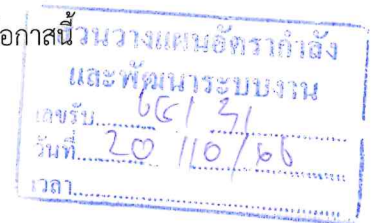 อกาสนี้
ส่วนวางแผนอัตรากำลัง
และพัฒนาระบบงาน
เลขรับ
วันที่ 20 / 10 / 66
เวลา